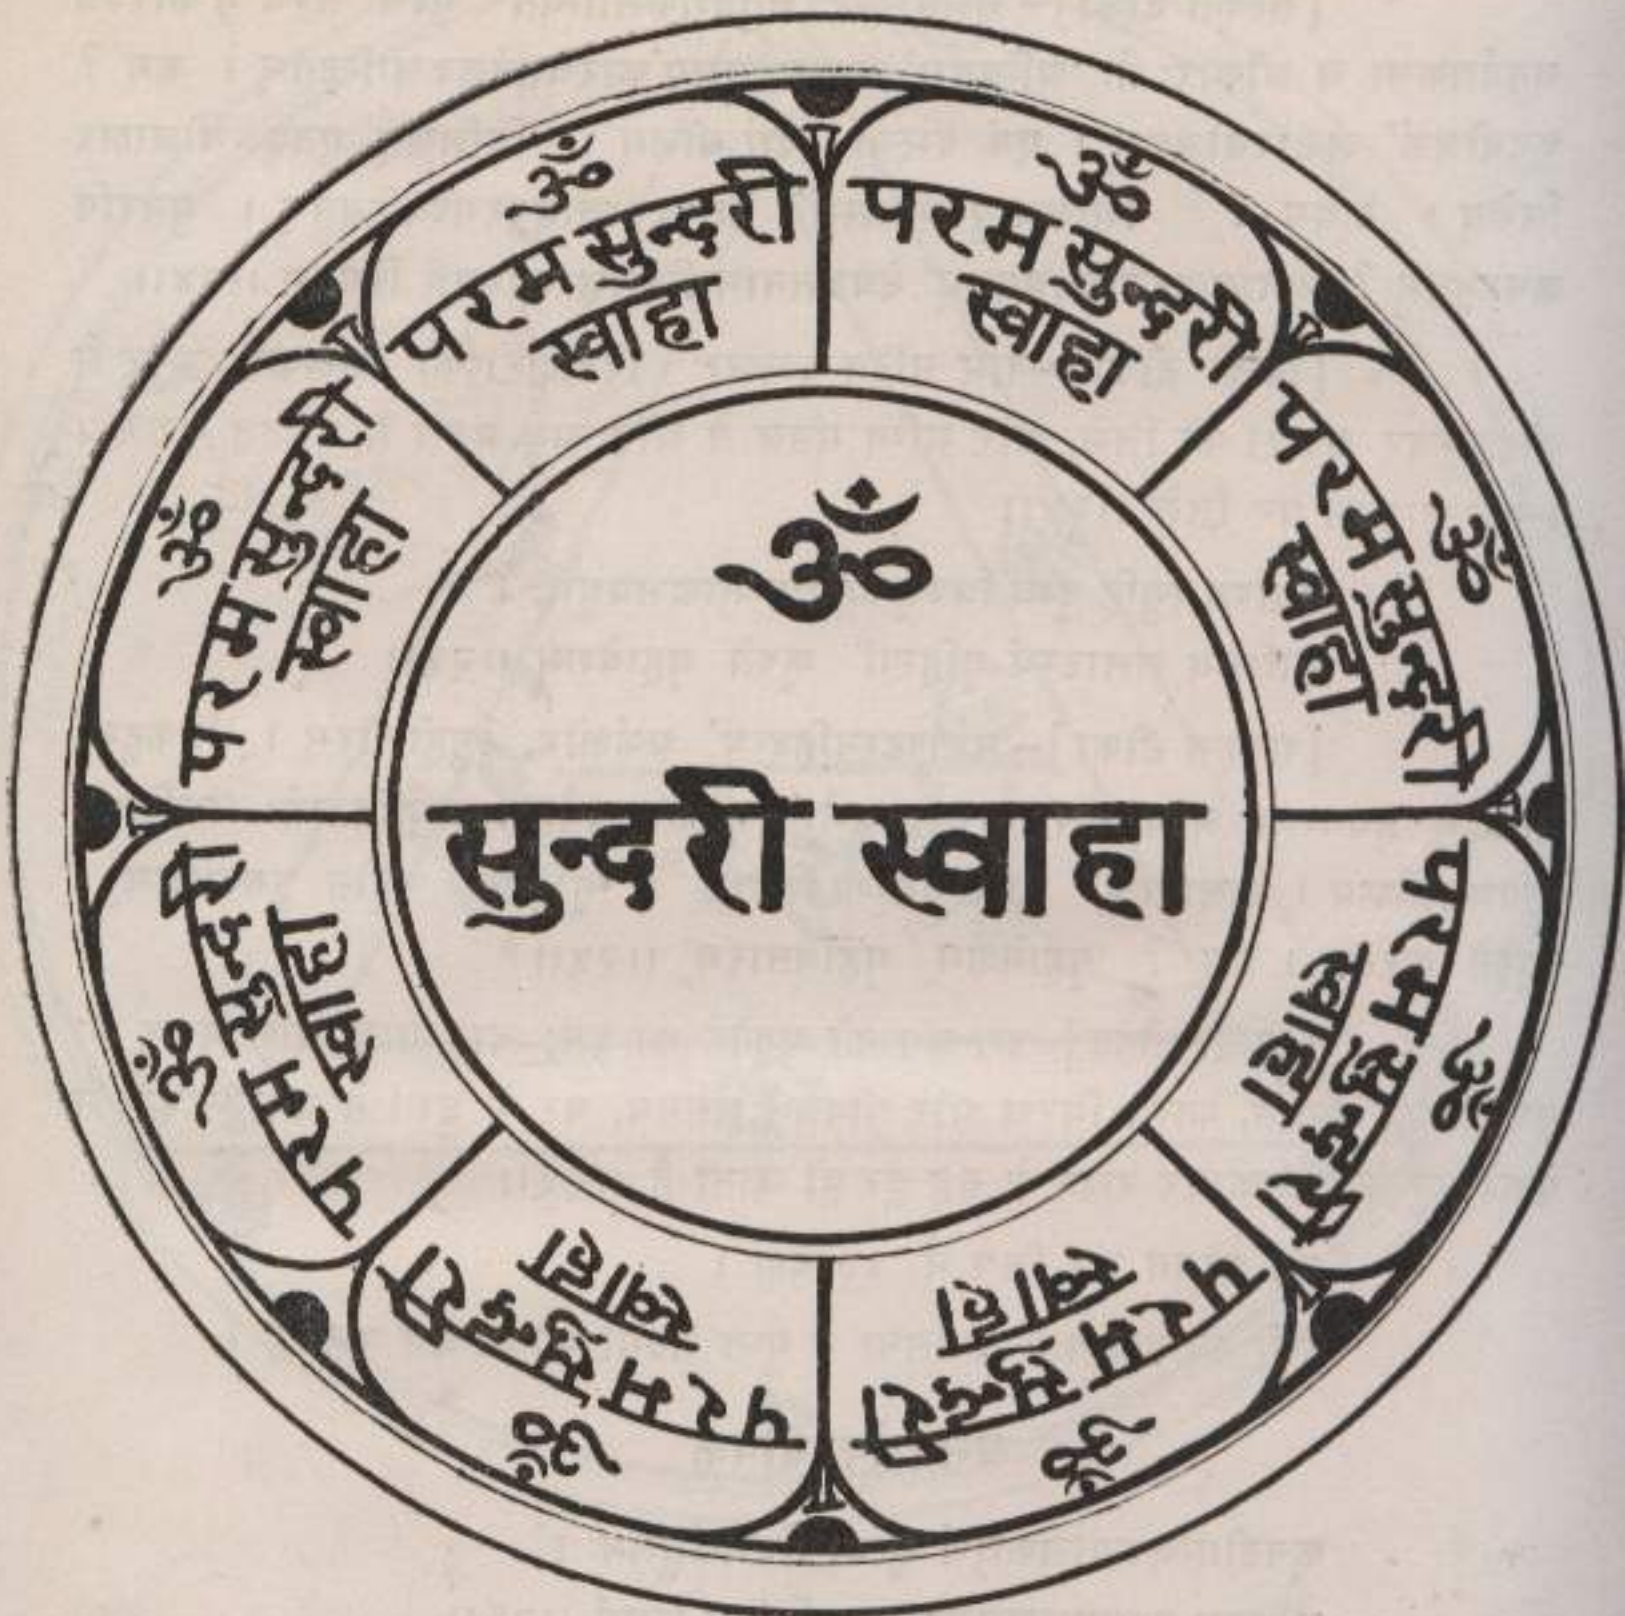 ॐ
सुन्दरी स्वाहा
ॐ
परम सुन्दरी
स्वाहा
ॐ
परम सुन्दरी
स्वाहा
ॐ
परम सुन्दरी
स्वाहा
ॐ
परम सुन्दरी
स्वाहा
ॐ
परम सुन्दरी
स्वाहा
ॐ
परम सुन्दरी
स्वाहा
ॐ
परम सुन्दरी
स्वाहा
ॐ
परम सुन्दरी
स्वाहा